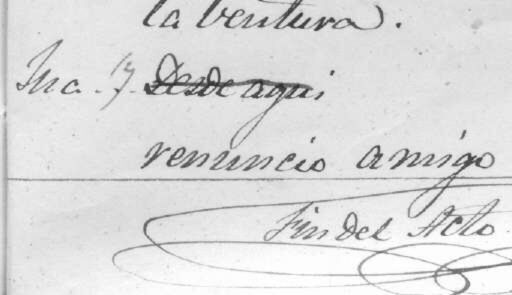 la ventura.
Ina. y. Desde aqui
renuncio amigo
Fin del Acto